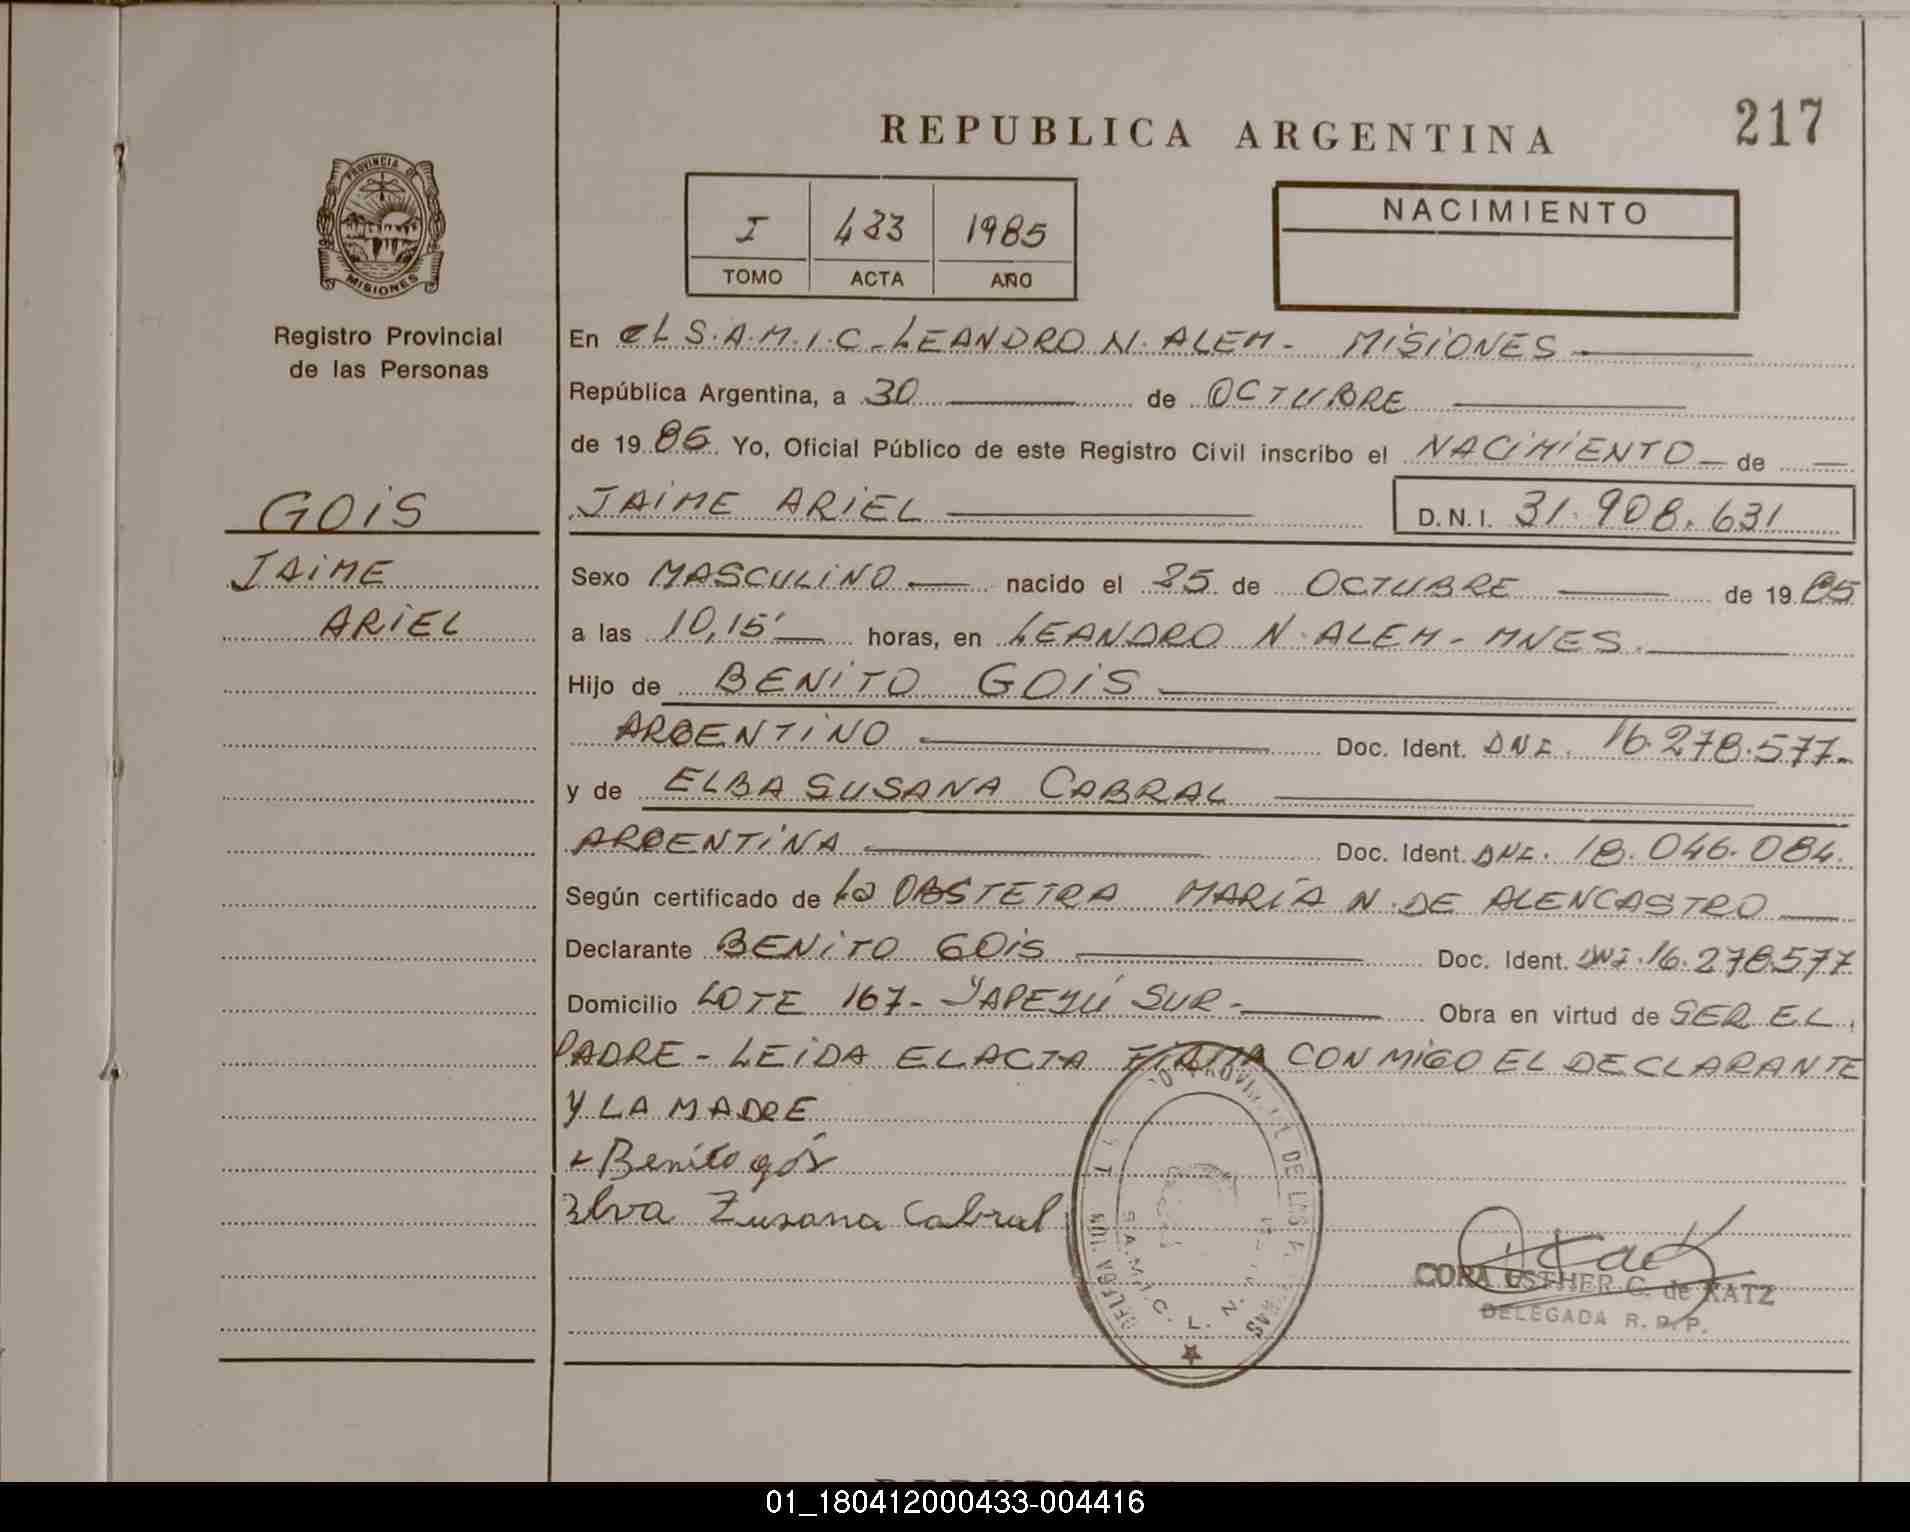 REPUBLICA ARGENTINA
217
PROVINCIA DE
MISIONES
Registro Provincial
de las Personas
I 433 1985
TOMO ACTA AÑO
NACIMIENTO
En el S.A.M.I.C - LEANDRO N. ALEM - MISIONES
República Argentina, a 30 de OCTUBRE
de 19 85 Yo, Oficial Público de este Registro Civil inscribo el NACIMIENTO de
JAIME ARIEL D.N.I. 31.908.631
GOIS
JAIME
ARIEL
Sexo MASCULINO nacido el 25 de OCTUBRE de 19 85
a las 10,15' horas, en LEANDRO N. ALEM - MNES.
Hijo de BENITO GOIS
ARGENTINO Doc. Ident. DNI. 16.278.577-
y de ELBA SUSANA CABRAL
ARGENTINA Doc. Ident. DNI. 18.046.084.
Según certificado de La OBSTETRA MARÍA N. DE ALENCASTRO
Declarante BENITO GOIS Doc. Ident. DNI. 16.278.577
Domicilio LOTE 167 - YAPEYÚ SUR - Obra en virtud de SER EL
PADRE - LEIDA EL ACTA FIRMA CONMIGO EL DECLARANTE
Y LA MADRE
Benito gois
Elva Zusana Cabral
S.A.M.I.C. L. N.
CORA ESTHER C. de KATZ
DELEGADA R. P. P.
01_180412000433-004416